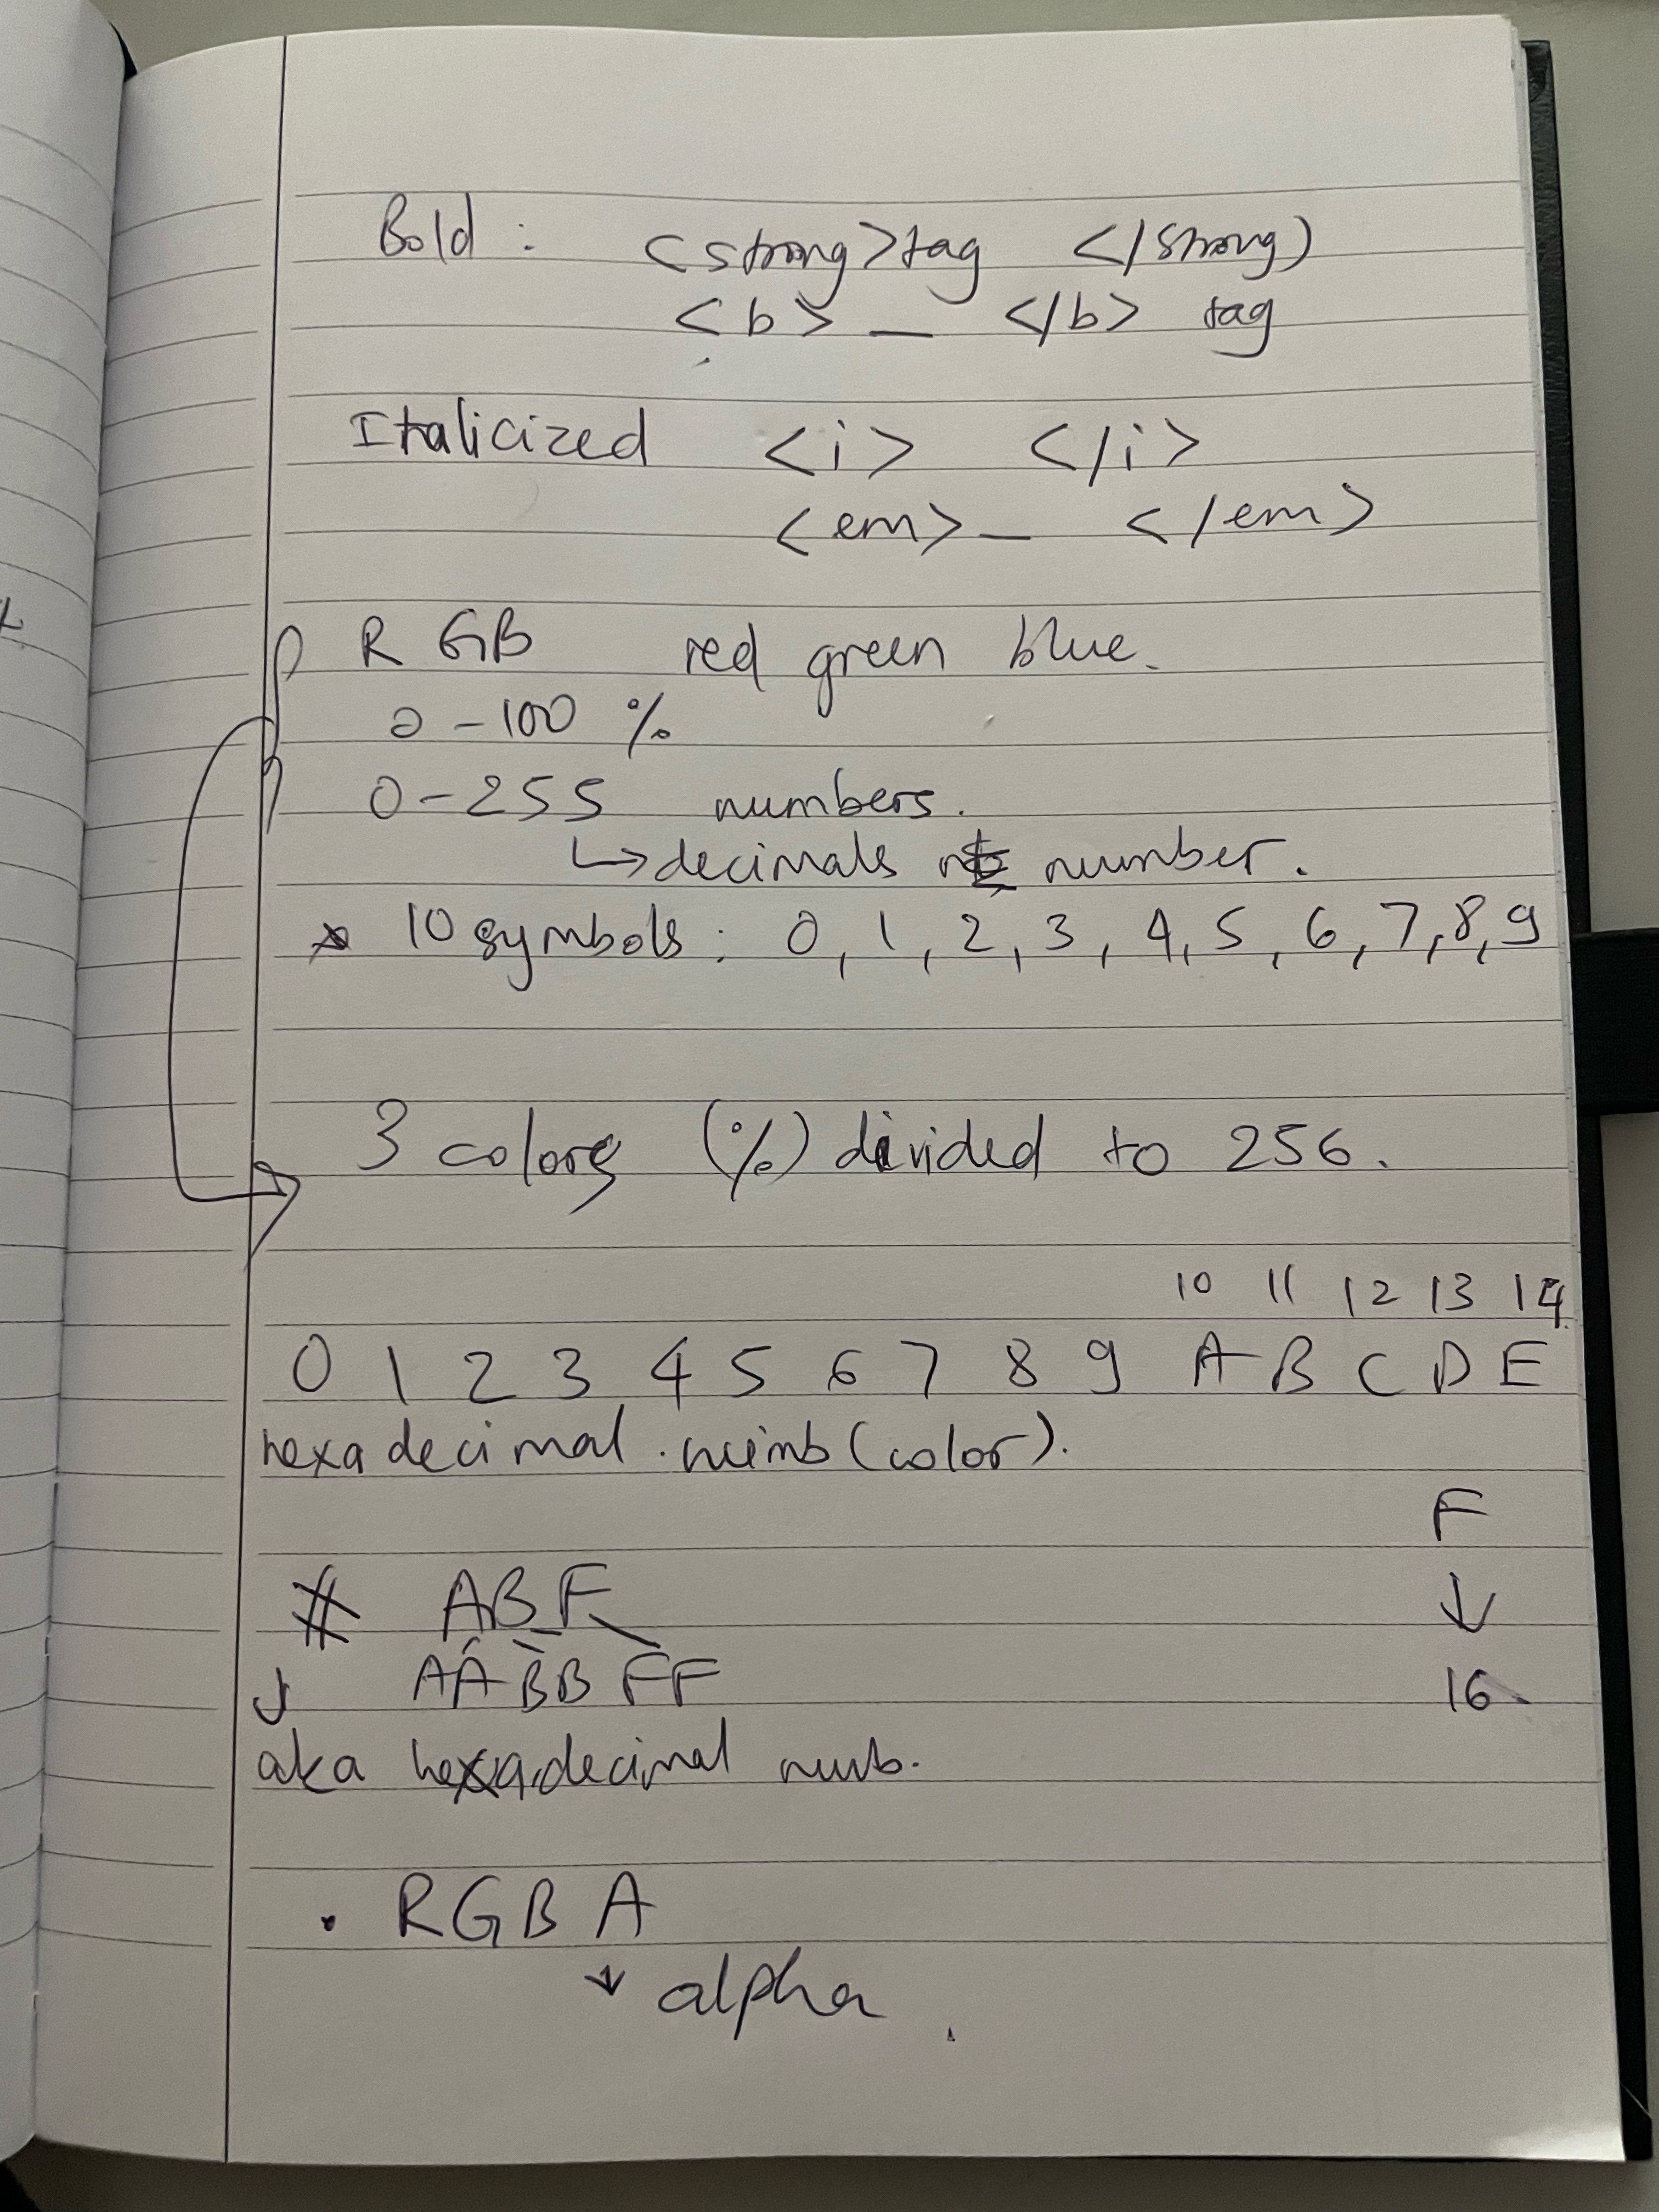 Bold : <strong>tag </strong)
<b> _ </b> tag
Italicized <i> </i>
<em> _ </em>
RGB red green blue.
0 - 100 %
0 - 255 numbers.
↳ decimals number.
* 10 symbols : 0, 1, 2, 3, 4, 5, 6, 7, 8, 9
3 colors (%) divided to 256.
10 11 12 13 14
0 1 2 3 4 5 6 7 8 9 A B C D E
hexadecimal . numb (color).
F
↓
16
# ABF
↓ AA BB FF
aka hexadecimal numb.
. RGB A
↓ alpha .